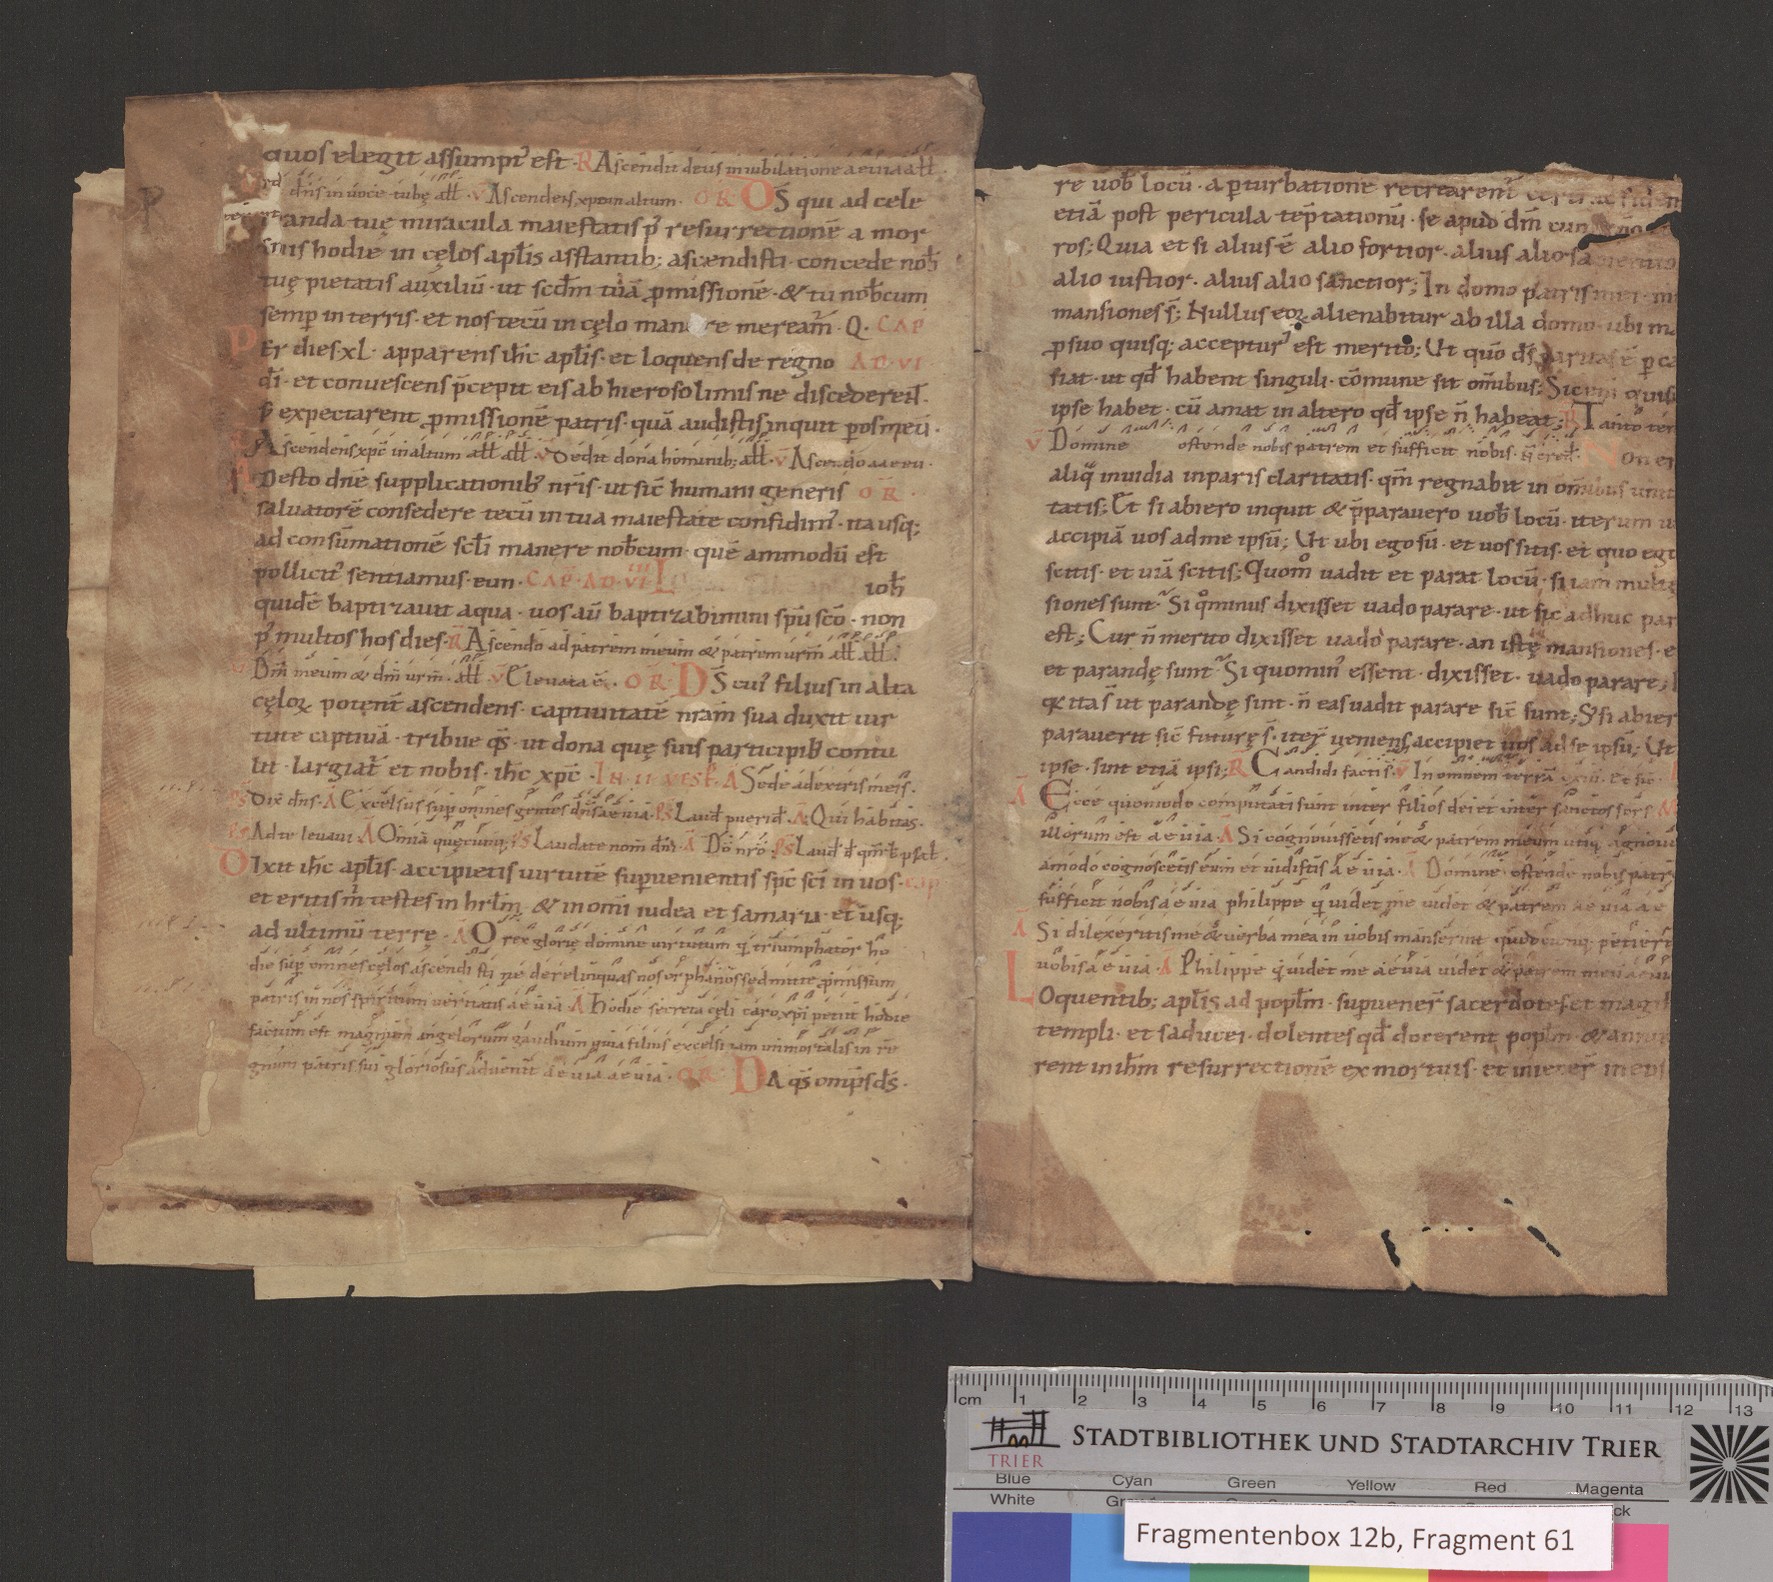 quos elegit assumptꝰ est · R Ascendit deus in iubilatione aeuia all̄
dn̄s in uoce tubę all̄ · V̄ Ascendens xp̄c in altum · OR O D̄S qui ad cele
anda tuę miracula maiestatis p̄ resurrectionē a mor
tuis hodie in cęlos apl̄is astantib; ascendisti · concede nob̄
tuę pietatis auxiliū · ut scd̄m tuā ꝓmissionē · & tu nob̄cum
semp̄ in terris · et nos tecū in cęlo manere meream̄ · Q · CAP
PEr dies xl · apparens ih̄c apl̄is · et loquens de regno AD · VI
dī · et conuescens p̄cepit eis ab hierosolimis ne discederent̄ ·
s; expectarent ꝓmissionē patris · quā audistis inquit p̄ os meū ·
R Ascendens xp̄c in altum all̄ all̄ · V̄ dedit dona hominib; all̄ · V̄ Ascendo ae eu ·
ADesto dn̄e supplicationibꝰ nr̄is · ut sic̄ humani generis OR ·
saluatorē consedere tecū in tua maiestate confidimꝰ · ita usq;
ad consūmationē scl̄i manere nob̄cum · quē ammodū est
pollicitꝰ sentiamus · eun · CAP · AD · VIIII ioh̄
quidē baptizauit aqua · uos aū baptizabimini sp̄u sc̄o · non
p̄ multos hos dies · R Ascendo ad patrem meum & patrem ur̄m all̄ all̄ ·
Dm̄ meum & dm̄ ur̄m · all̄ · V̄ Eleuata ē · OR · DS̄ cuiꝰ filius in alta
cęloꝝ potent̄ ascendens · captiuitatē nr̄am sua duxit uir
tute captiuā · tribue qs̄ · ut dona quę suis participibꝰ contu
lit · largiat̄ et nobis · ih̄c xp̄c · IN II VESP̄ · A Sede a dextris meis ·
Ps Dix̄ dn̄s · A Excelsus sup̄ omnes gentes dn̄s aeuia · Ps Laud̄ pueri d̄ · A Qui habitas ·
Ps Ad te leuaui · A Omīa quęcumq; Ps Laudate nom̄ dn̄i · A Dō nr̄o · Ps Laud̄ d̄ qm̄ b̄ psal̄ ·
DIxit ih̄c apl̄is · accipietis uirtutē sup̄uenientis sp̄c sc̄i in uos · cap
et eritis m̄ testes in hrl̄m · & in omī iudea et samaria · et usq;
ad ultimū terrę · A O rex glorię domine uirtutum qi triumphator ho
die sup̄ omnes cęlos ascendisti ne derelinquas nos orphanos sed mitte ꝓmissum
patris in nos spiritum ueritatis aeuia · A Hodie secreta cęli caro xp̄i petiit hodie
factum est magnum angelorum gaudium quia filius excelsi iam inmortalis in re
gnum patris sui gloriosus aduenit aeuia aeuia · OR · DA qs̄ omp̄s ds̄ ·
re uob̄ locū · a ꝑturbatione recrearent̄
etiā post pericula tēptationū · se apud dm̄
ros; Quia et si alius ē alio fortior · alius alio
alio iustior · alius alio sanctior; In domo patris mei
mansiones s̄; Nullus eoꝝ alienabitur ab illa domo · ubi
ꝓ suo quisq; accepturꝰ est merito; Ut quō ds̄ caritas ē ꝑ
fiat · ut qd̄ habent singuli · cōmune sit om̄ibus; Sic enī quis
ipse habet · cū amat in altero qd̄ ipse n̄ habeat; R Tanto
V̄ Domine ostende nobis patrem et sufficit nobis · Non
aliqͣ inuidia inparis claritatis · qm̄ regnabit in om̄ibus
tatis; Et si abiero inquit & p̄parauero uob̄ locū · iterum
accipiā uos ad me ipsū; Ut ubi ego sū · et uos sitis · et quo ego
scitis · et uiā scitis; Quom̊ uadit et parat locū · si iam multę
siones sunt? Si qͦminus dixisset uado parare · ut sic adhuc
est; Cur n̄ merito dixisset uado parare · an istę mansiones
et parandę sunt? Si quominꝰ essent · dixisset · uado parare;
& ita s̄ ut parandę sint · n̄ eas uadit parare sic̄ sunt; S; si abier
parauerit sic̄ futurę s̄ · iteꝝ ueniens accipiet uos ad se ipsū; Ut
ipse · sint etiā ipsi; R Candidi facti s̄ · V̄ In omnem terrā exiit · et sic̄ ·
A Ecce quomodo computati sunt inter filios dei et inter sanctos sors
illorum est aeuia · A Si cognouissetis me & patrem meum utiq;
amodo cognoscetis eum et uidistis aeuia · A Domine ostende nobis patrē
sufficit nobis aeuia philippe qi uidet me uidet & patrem aeuia ae
A Si dilexeritis me & uerba mea in uobis manserint quodcumq; petieri
uobis aeuia · A Philippe qi uidet me aeuia uidet & patrem meū aeui
LOquentib; apl̄is ad popl̄m · sup̄uener̄ sacerdotes et mag
templi · et saducei · dolentes qd̄ docerent popl̄m · & annun
rent in ih̄m resurrectionē ex mortuis · et iniecer̄ in eos
cm 1 2 3 4 5 6 7 8 9 10 11 12 13
TRIER
STADTBIBLIOTHEK UND STADTARCHIV TRIER
Blue Cyan Green Yellow Red Magenta
White
Fragmentenbox 12b, Fragment 61